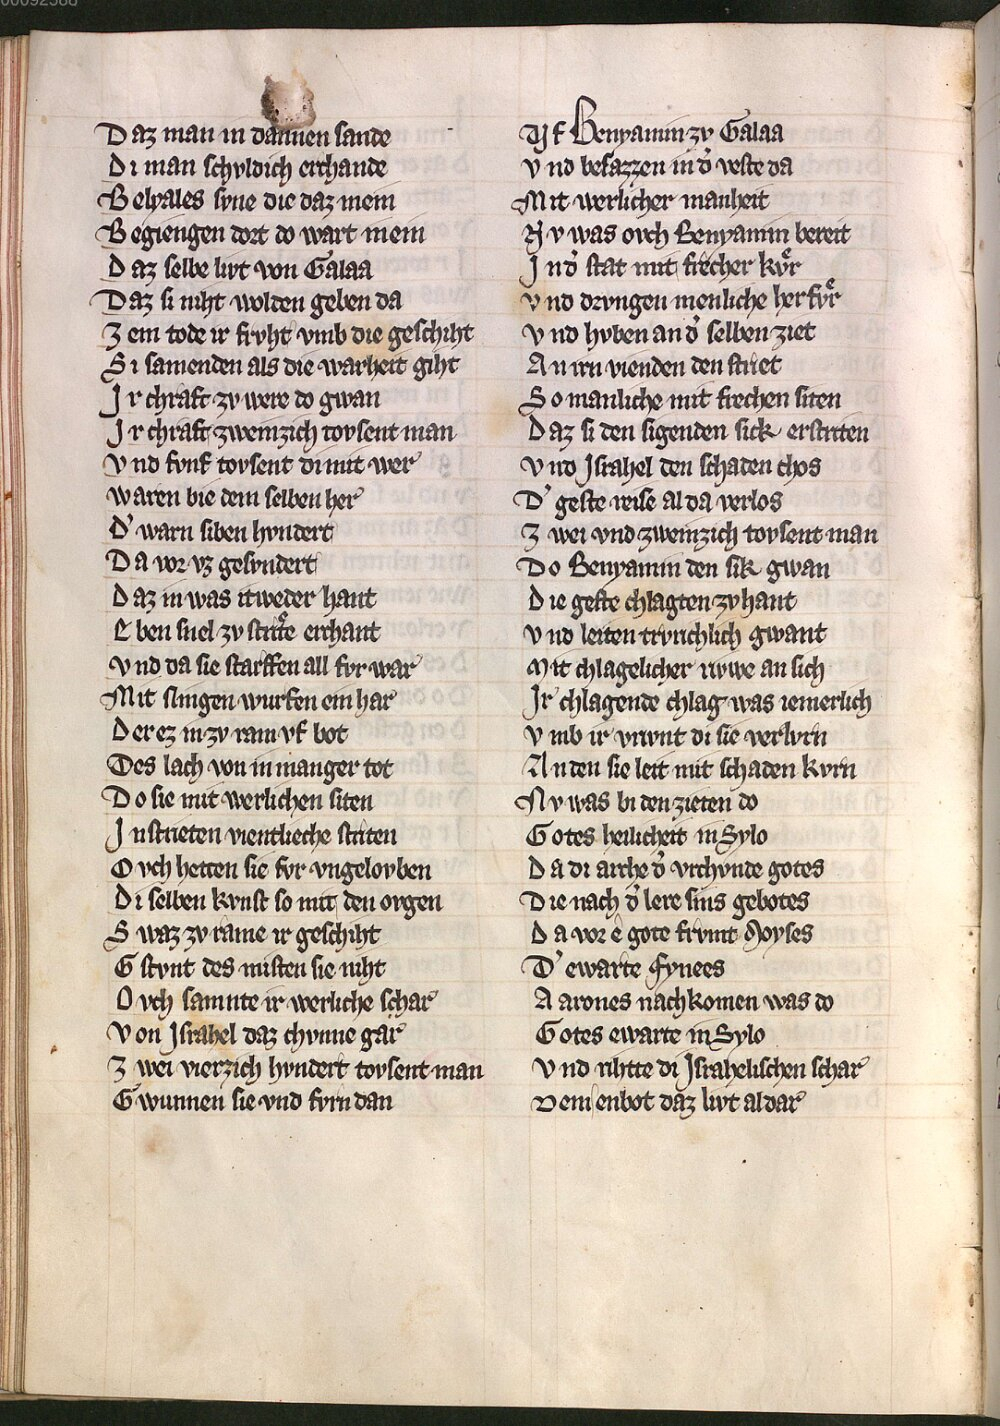 00092588
Daz man in dannen sande
Di man schvldich erchande
Belyales svne die daz mein
Begiengen dort do wart mein
Daz selbe livt von Galaa
Daz si niht wolden geben da
Zem tode ir frvht vmb die geschiht
Si samenden als die warheit giht
Ir chraft zv were do gwan
Ir chraft zweinzich tovsent man
Vnd fvnf tovsent di mit wer
Waren bie dem selben her
D' warn siben hvndert
Da vor vz gesvndert
Daz in was itweder hant
Eben snel zv strite erchant
Vnd da sie starffen all fvr war
Mit slingen wurfen ein har
Der ez in zv ram vf bot
Des lach von in manger tot
Do sie mit werlichen siten
In strieten vientlieche striten
Ovch hetten sie fvr vngelovben
Di selben kvnst so mit den orgen
Swaz zv rame ir geschiht
Gstvnt des misten sie niht
Ovch samnte ir werliche schar
Von Israhel daz chvnne gar
Zwei vierzich hvndert tovsent man
Gwunnen sie vnd fvrn dan
Vf Benyamin zv Galaa
Vnd besazzen in d' veste da
Mit werlicher manheit
Nv was ovch Benyamin bereit
In d' stat mit frecher kvͤr
Vnd drvngen menliche her fvͤr
Vnd hvben an d' selben ziet
An irn vienden den striet
So manliche mit frechen siten
Daz si den sigenden sick erstriten
Vnd Israhel den schaden chos
D' geste reise al da verlos
Zwei vnd zweinzich tovsent man
Do Benyamin den sik gwan
Die geste chlagten zv hant
Vnd leiten trvrichlich gwant
Mit chlagelicher rivwe an sich
Ir chlagende chlag was iemerlich
Vmb ir vrivnt di sie verlvrn
An den sie leit mit schaden kvrn
Nv was bi den zieten do
Gotes heilicheit in Sylo
Da di arche d' vrchvnde gotes
Die nach d' lere sins gebotes
Da vor e gote frvmt Moyses
D' ewarte Fynees
Aarones nachkomen was do
Gotes ewarte in Sylo
Vnd rihtte di Israhelischen schar
Dem enbot daz livt aldar